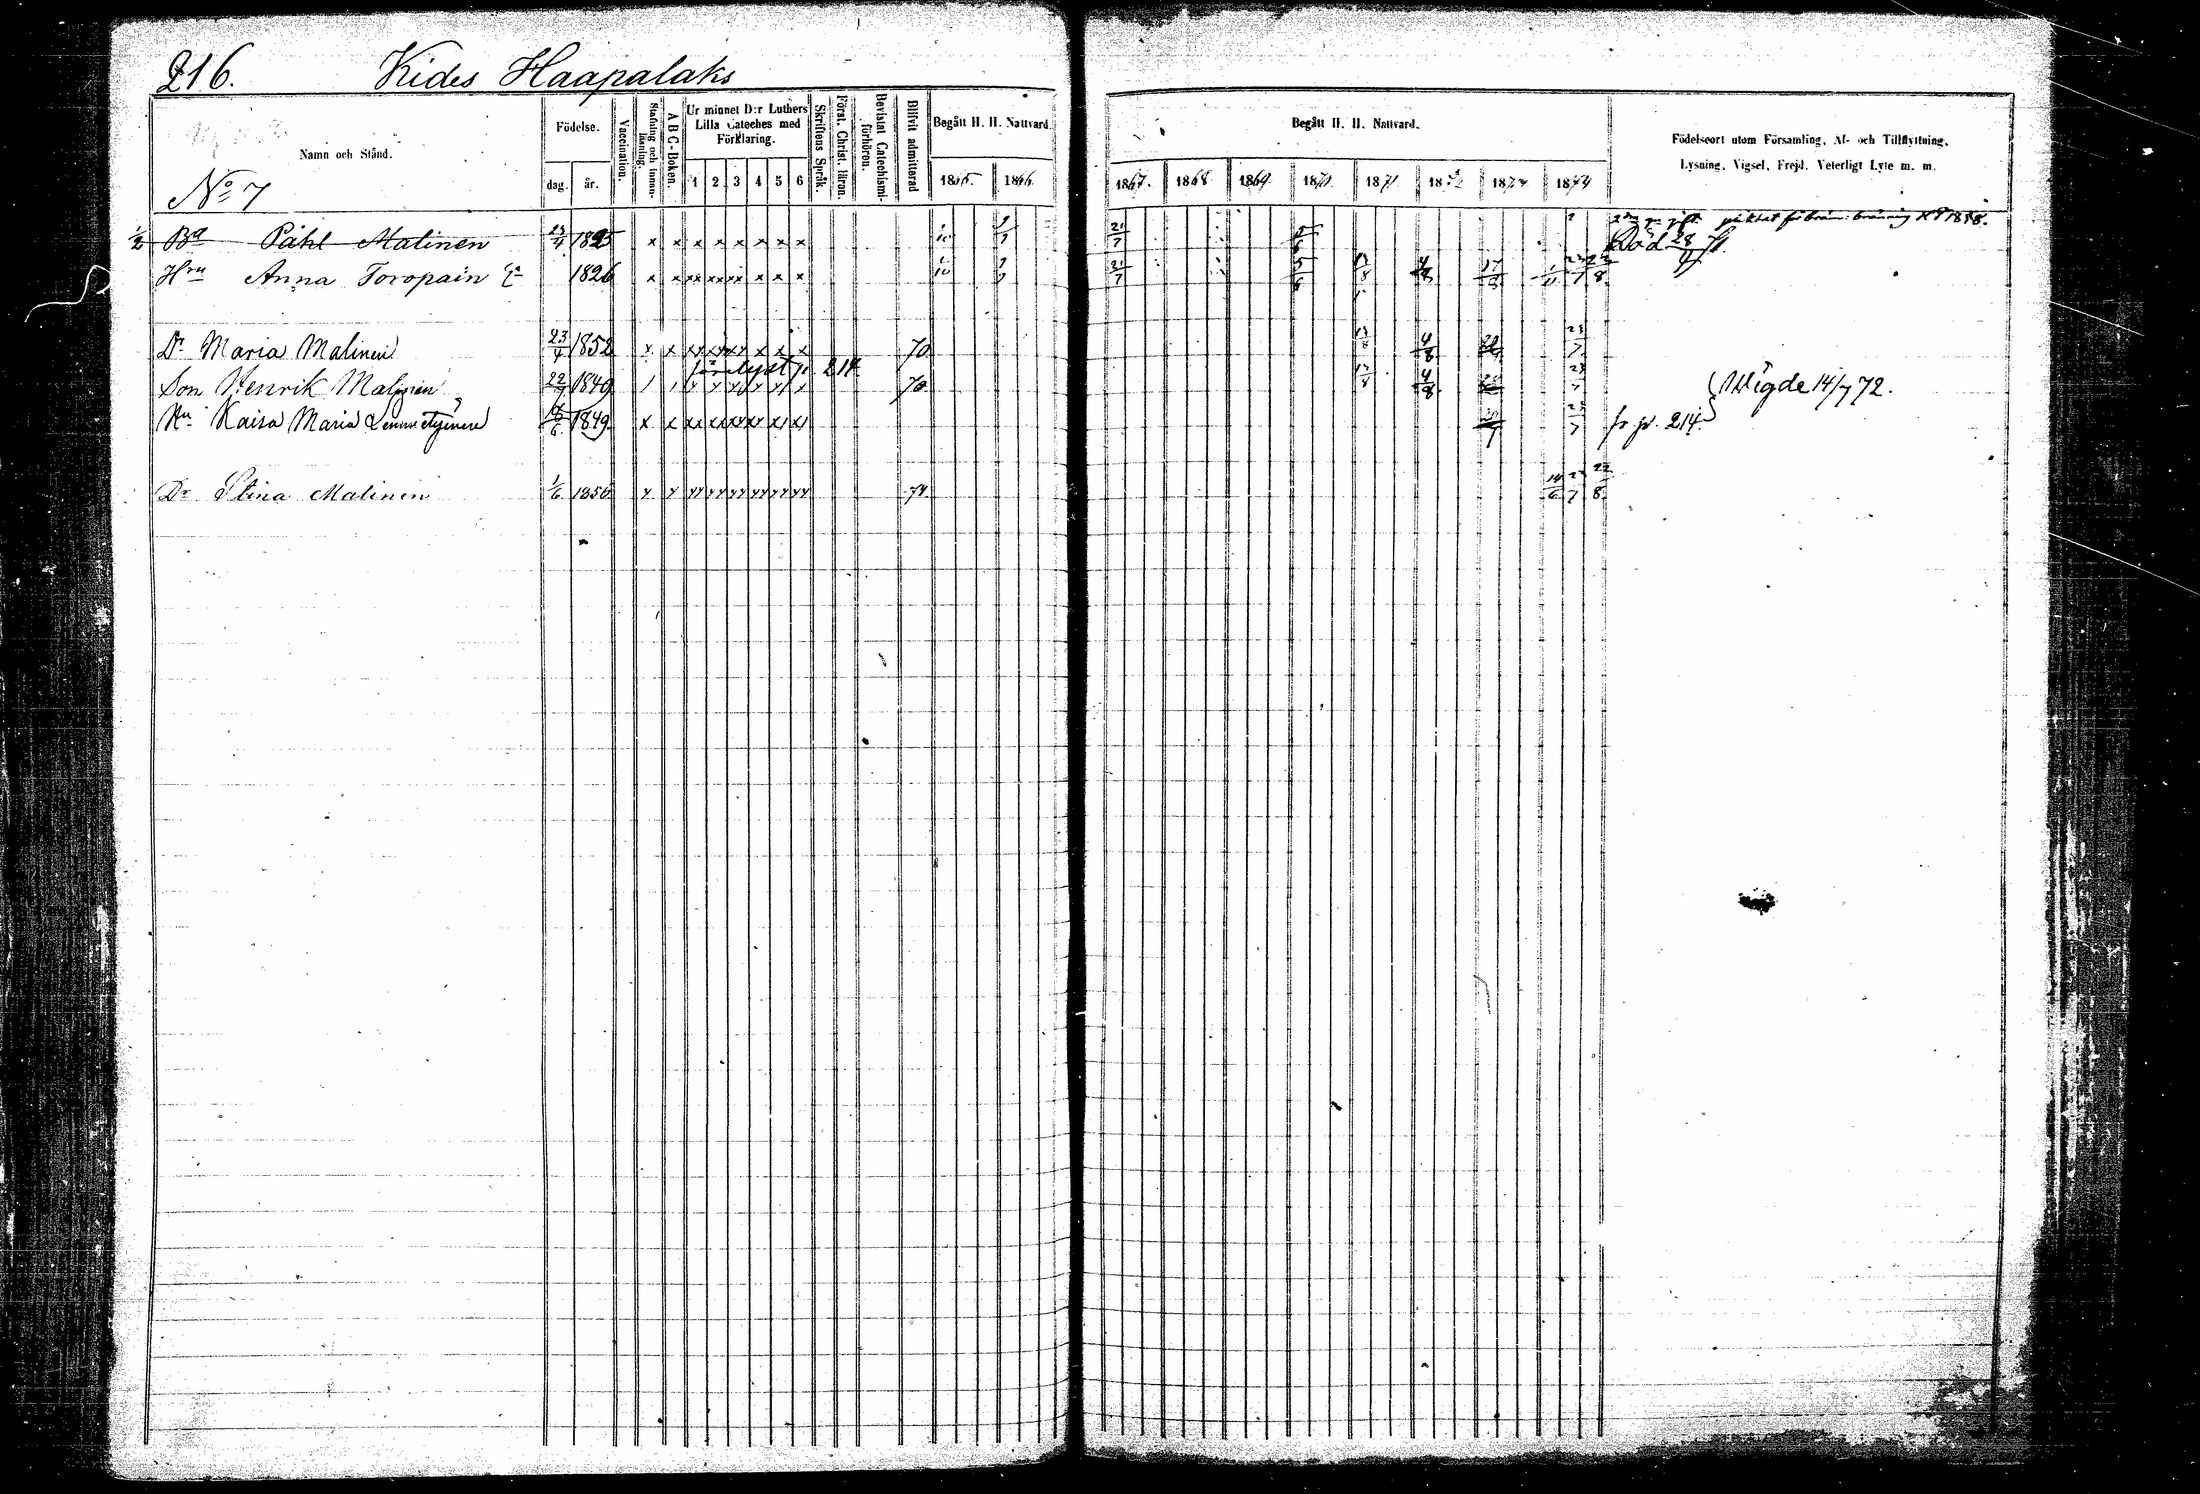 216. Kides Haapalaks
Namn och Stånd.
Födelse.
dag. år.
Vaccination.
Stafning och innan-läsning.
A B C-Boken.
Ur minnet D:r Luthers Lilla Cateches med Förklaring.
1 2 3 4 5 6
Skriftens Språk.
Först. Christ. läran.
Bevistat Catechismi-förhören.
Blifvit admitterad
Begått H. H. Nattvard.
1865. 1866.
Begått H. H. Nattvard.
1867. 1868 1869 1870 1871 1872 1873 1874
Födelseort utom Församling, Af- och Tillflyttning,
Lysning, Vigsel, Frejd, Veterligt Lyte m. m.
No 7
1/2 Bd Påhl Malinen 1825 x x x x x x x x 21/7 5/6 Död 28/4 71.
Hru Anna Toropain 1826 x x x x x x x x 21/7 5/6 13/8 4/8
Dr Maria Malinen 23/4 1852 x x x x x x 70 13/8 4/8 23/7
214
Son Henrik Malinen 22/7 1849 70 13/8 4/8 23/7 Wigde 14/7 72.
Hu Kaisa Maria 1849 x x 23/7 fr p. 214.
Dr Stina Malinen 1/6 1856 74 14/6 23/7 22/8